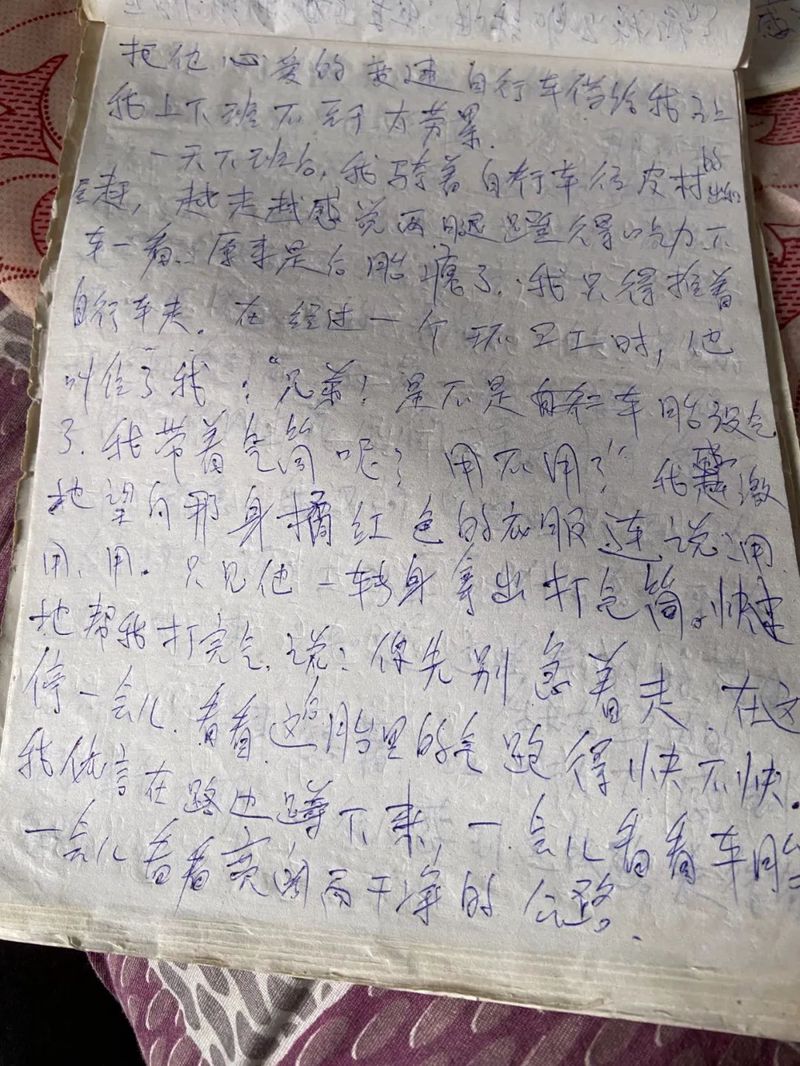 把他心爱的变速自行车借给我了上
我上下班不至于太劳累.
一天下班后,我骑着自行车往皮村的出租
屋赶,越走越感觉两腿蹬得吃力下
车一看、原来是后胎瘪了.我只得推着
自行车走.在经过一个环卫工时,他
叫住了我:“兄弟!是不是自行车胎没气
了.我带着气筒呢?用不用?”我感激
地望向那身橘红色的衣服连说:用
用、用.只见他一转身拿出打气筒。快速
地帮我打完气.说:你先别急着走.在这
停一会儿.看看这胎里的气跑得快不快.
我依言在路边蹲下来,一会儿看看车胎
一会儿看看宽阔而干净的公路.